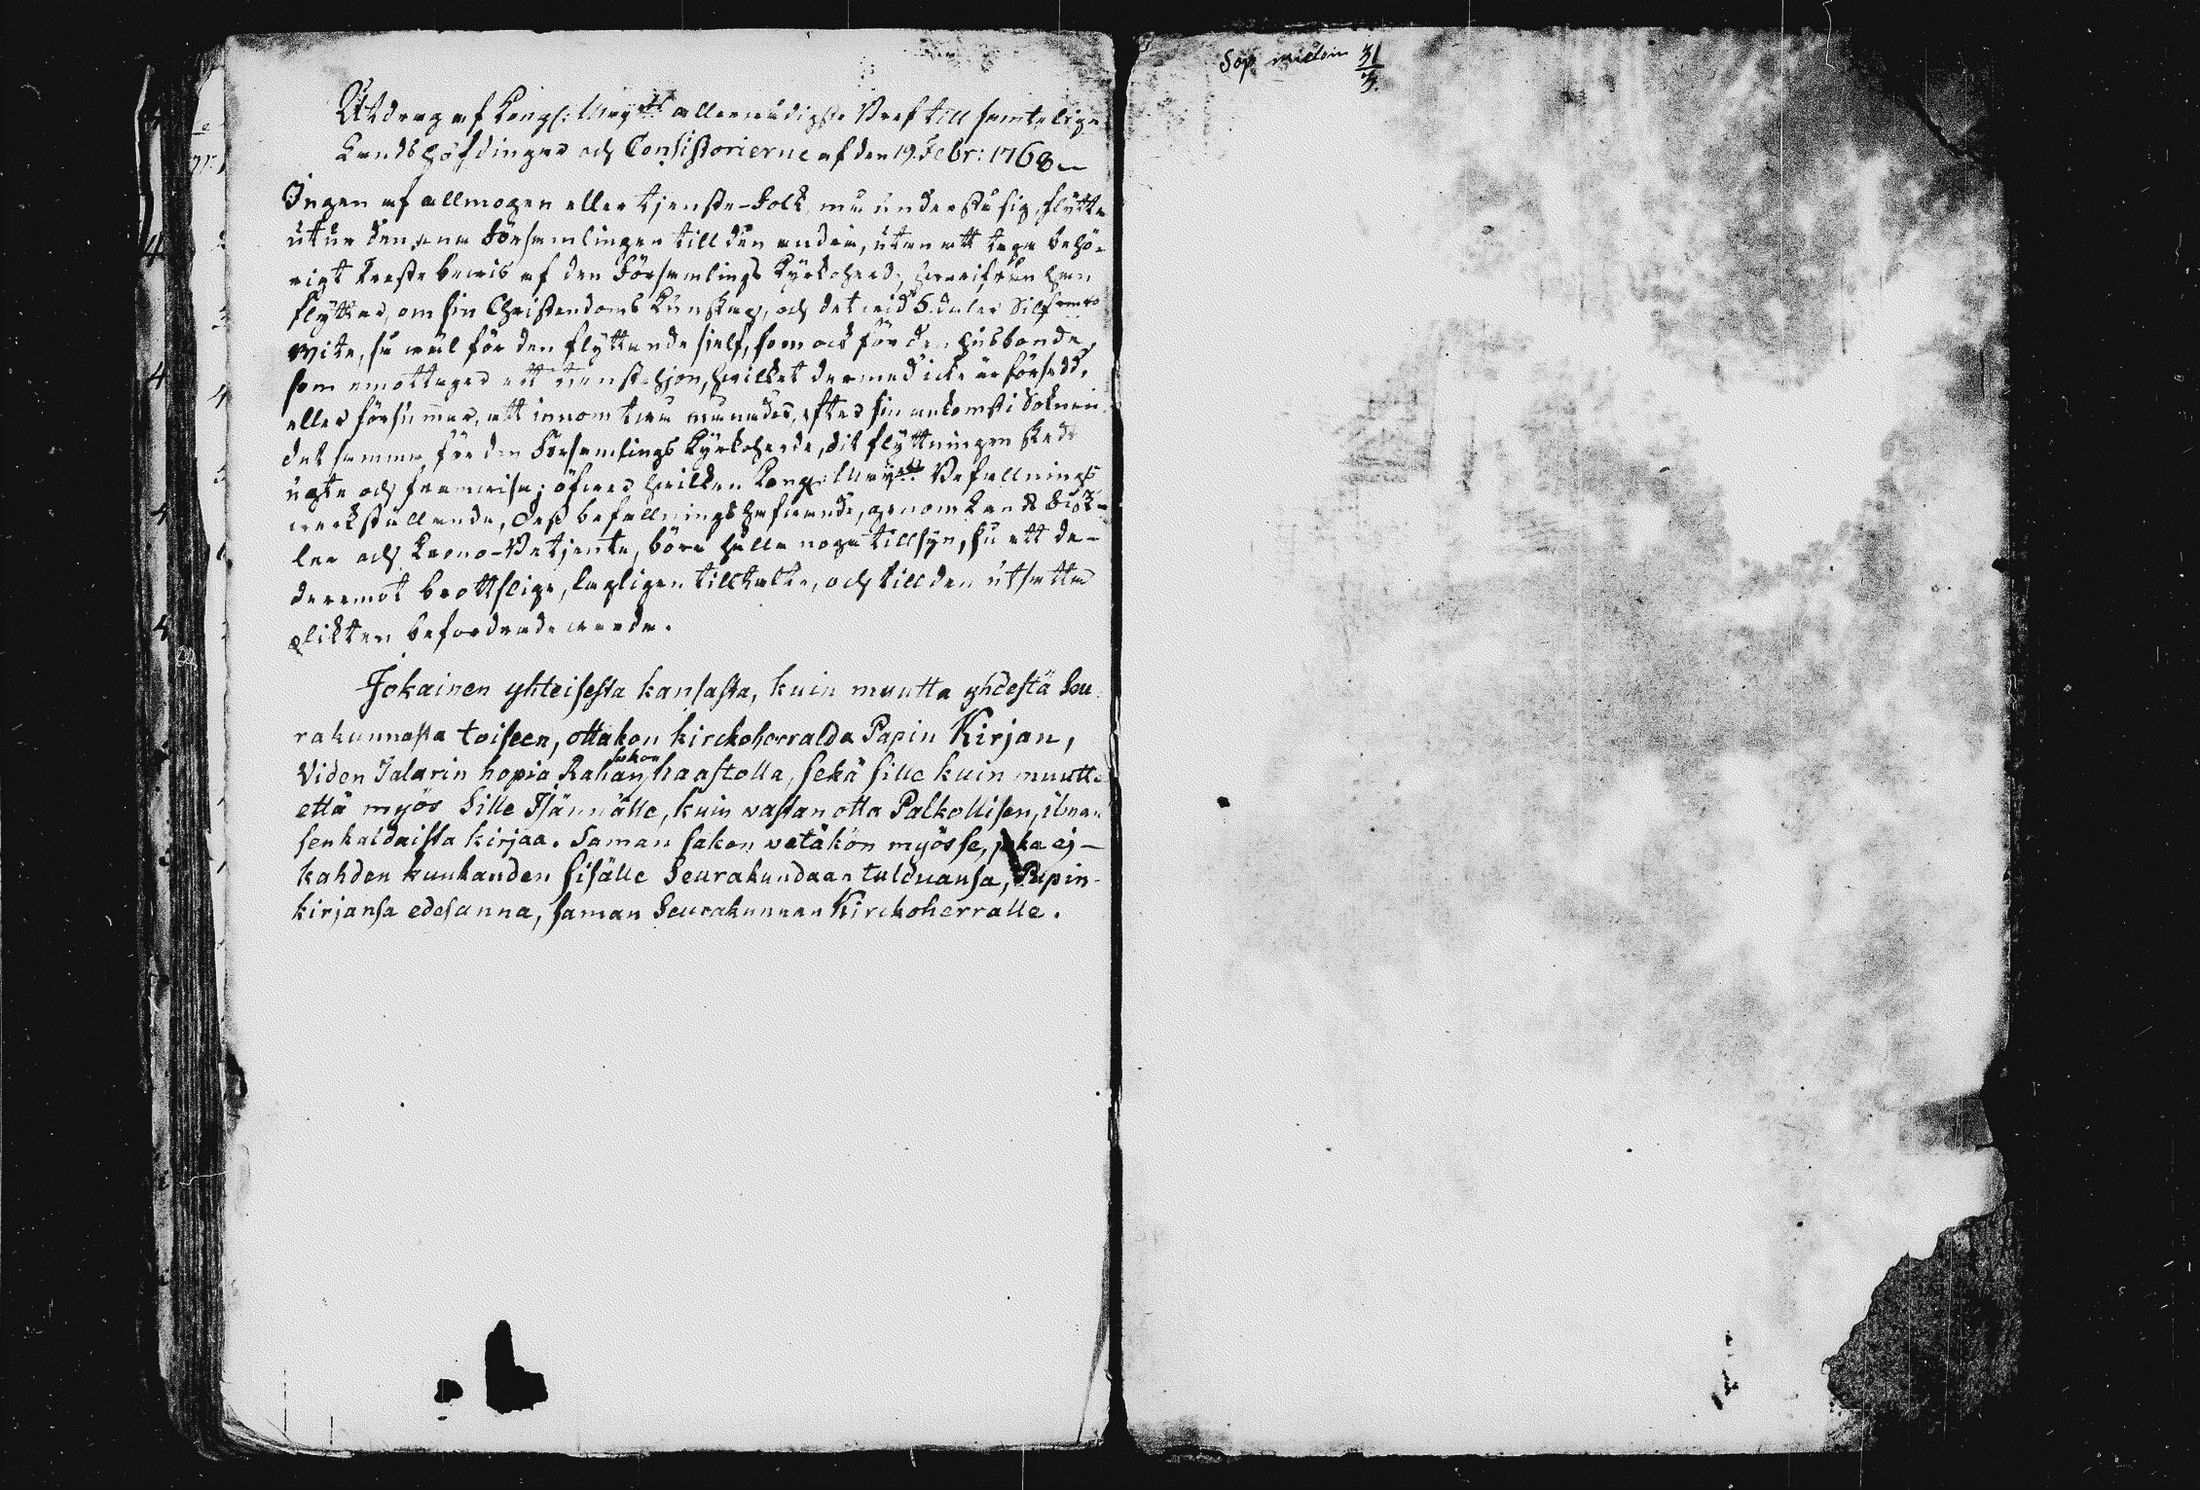 Utdrag af Kongl: May:tts allernådigste Bref till samtelige
Landshöfdingar och Consistorierne af den 19. Febr: 1768
Ingen af allmogen eller tjenste-Folk, må understå sig, flytta
utur den ena Församlingen till den andra, utan att taga behö-
rigt Preste bewis af den Församlings Kyrkoherde, hwarifrån han
flyttar, om sin Christendoms Kunskap, och det wid 5. daler Silfwer
wite, så wäl för den flyttande sielf, som ock för den husbonde,
som emottager ett tienstehjon, hwilket dermed icke är försedd,
eller försummar, att innom twå månader, efter sin ankomst i Soknen
det samma för den Församlings Kyrkoherde, dit flyttningen skedt
upte och framwisa; öfwer hwilken Kongl: May:tts Befallnings
werkställande, Dess befallningshafwande, genom Lands Fiska-
ler och Krono-Betjente, böra hålla noga tillsyn, så att de-
deremot brottslige, lagligen tilltalte, och till den utsatta
plikten befordrade warda.
Jokainen yhteisesta kansasta, kuin muutta yhdestä Seu
rakunnasta toiseen, ottakon kirckoherralda Papin Kirjan,
Viden Talarin hopia Rahan sakon haastolla, sekä sille kuin muutta
että myös Sille Isännälle, kuin vastan otta Palkollisen, ilman
senkaldaista kirjaa. Saman sakon vetäkön myös se, joka ej-
kahden kuukauden sisälle Seurakundaan tulduansa, Papin-
kirjansa edesanna, saman Seurakunnan Kirckoherralle.
31
3.